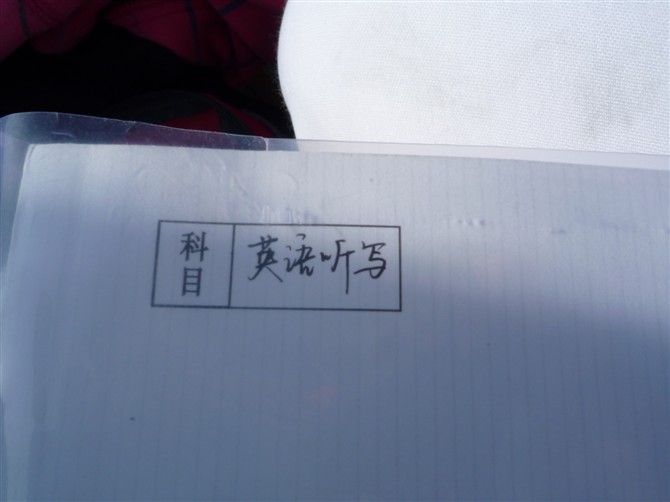 科目
英语听写